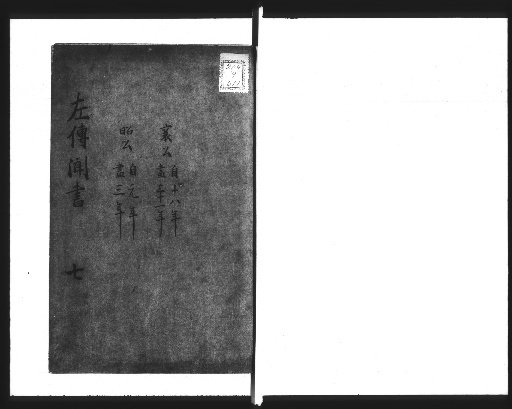 襄公 自十八年
盡三十一年
昭公 自元年
盡三年
左傳聞書 七